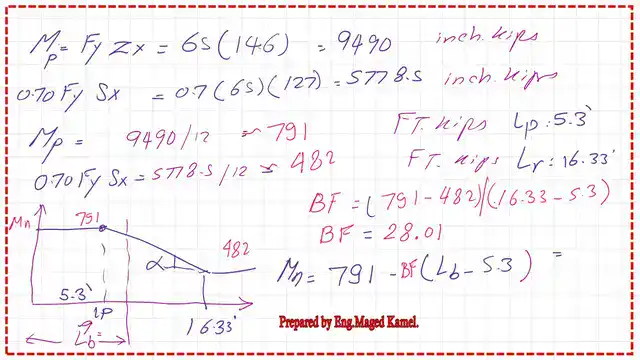 Mp = Fy Zx = 65(146) = 9490 inch.kips
0.70 Fy Sx = 0.7(65)(127) = 5778.5 inch.kips
Mp = 9490/12 ≈ 791 FT. kips Lp: 5.3'
0.70 Fy Sx = 5778.5/12 ≈ 482 FT. kips Lr: 16.33'
BF = (791-482)/(16.33-5.3)
BF = 28.01
Mn = 791 - BF(Lb - 5.3) =
Mn 791 482
α
5.3'
LP
9'
Lb=
16.33'
Prepared by Eng.Maged Kamel.